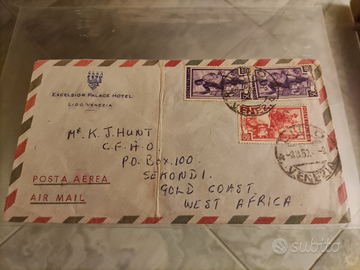 EXCELSIOR PALACE HOTEL
LIDO-VENEZIA
MR. K. J. HUNT
C.F.H.O
P.O. BOX. 100.
SEKONDI.
GOLD COAST.
WEST AFRICA
POSTA AEREA
AIR MAIL
LIDO
VENEZIA
subito